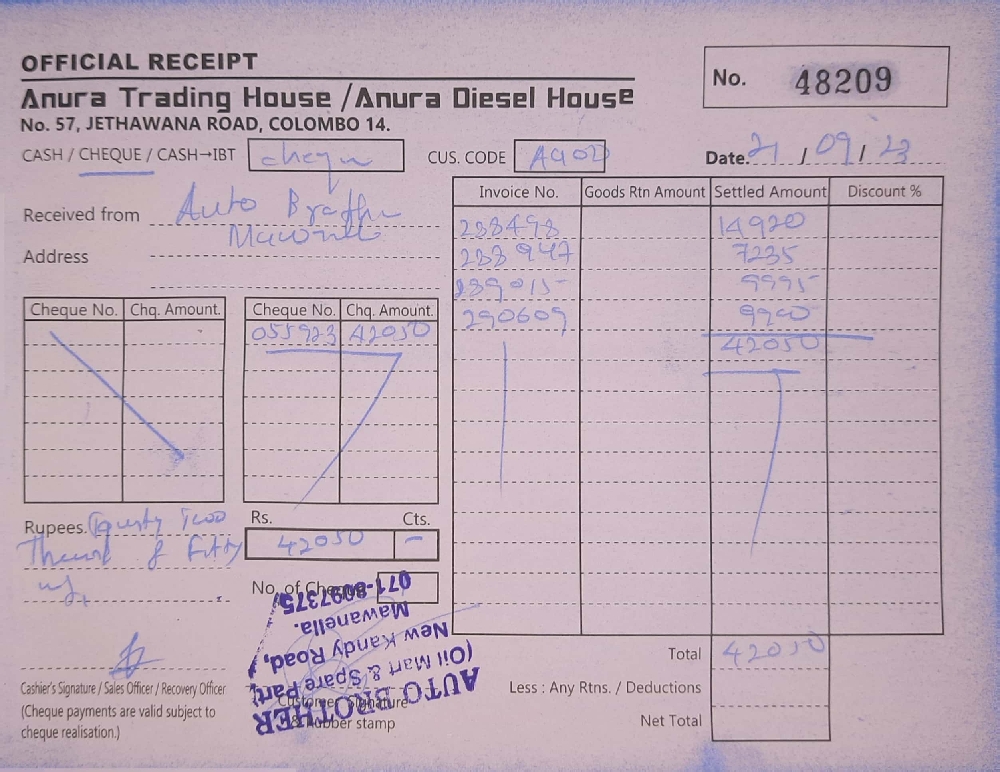 OFFICIAL RECEIPT
No. 48209
Anura Trading House /Anura Diesel House
No. 57, JETHAWANA ROAD, COLOMBO 14.
CASH / CHEQUE / CASH→IBT
CUS. CODE
Date. 21 / 09 / 23
Received from Auto
Address
Invoice No. Goods Rtn Amount Settled Amount Discount %
288498 14920
288947 7235
289015 9995
290609 9900
42050
Cheque No. Chq. Amount. Cheque No. Chq. Amount.
055923 42050
Rupees. Two
& Fifty
Rs. Cts.
42050 –
No. of Cheque
071-8097375
Mawanella.
New Kandy Road,
(Oil Mart & Spare Part)
AUTO BROTHER
Cashier's Signature / Sales Officer / Recovery Officer
(Cheque payments are valid subject to
cheque realisation.)
Customer Signature
& Rubber stamp
Total 42050
Less : Any Rtns. / Deductions
Net Total